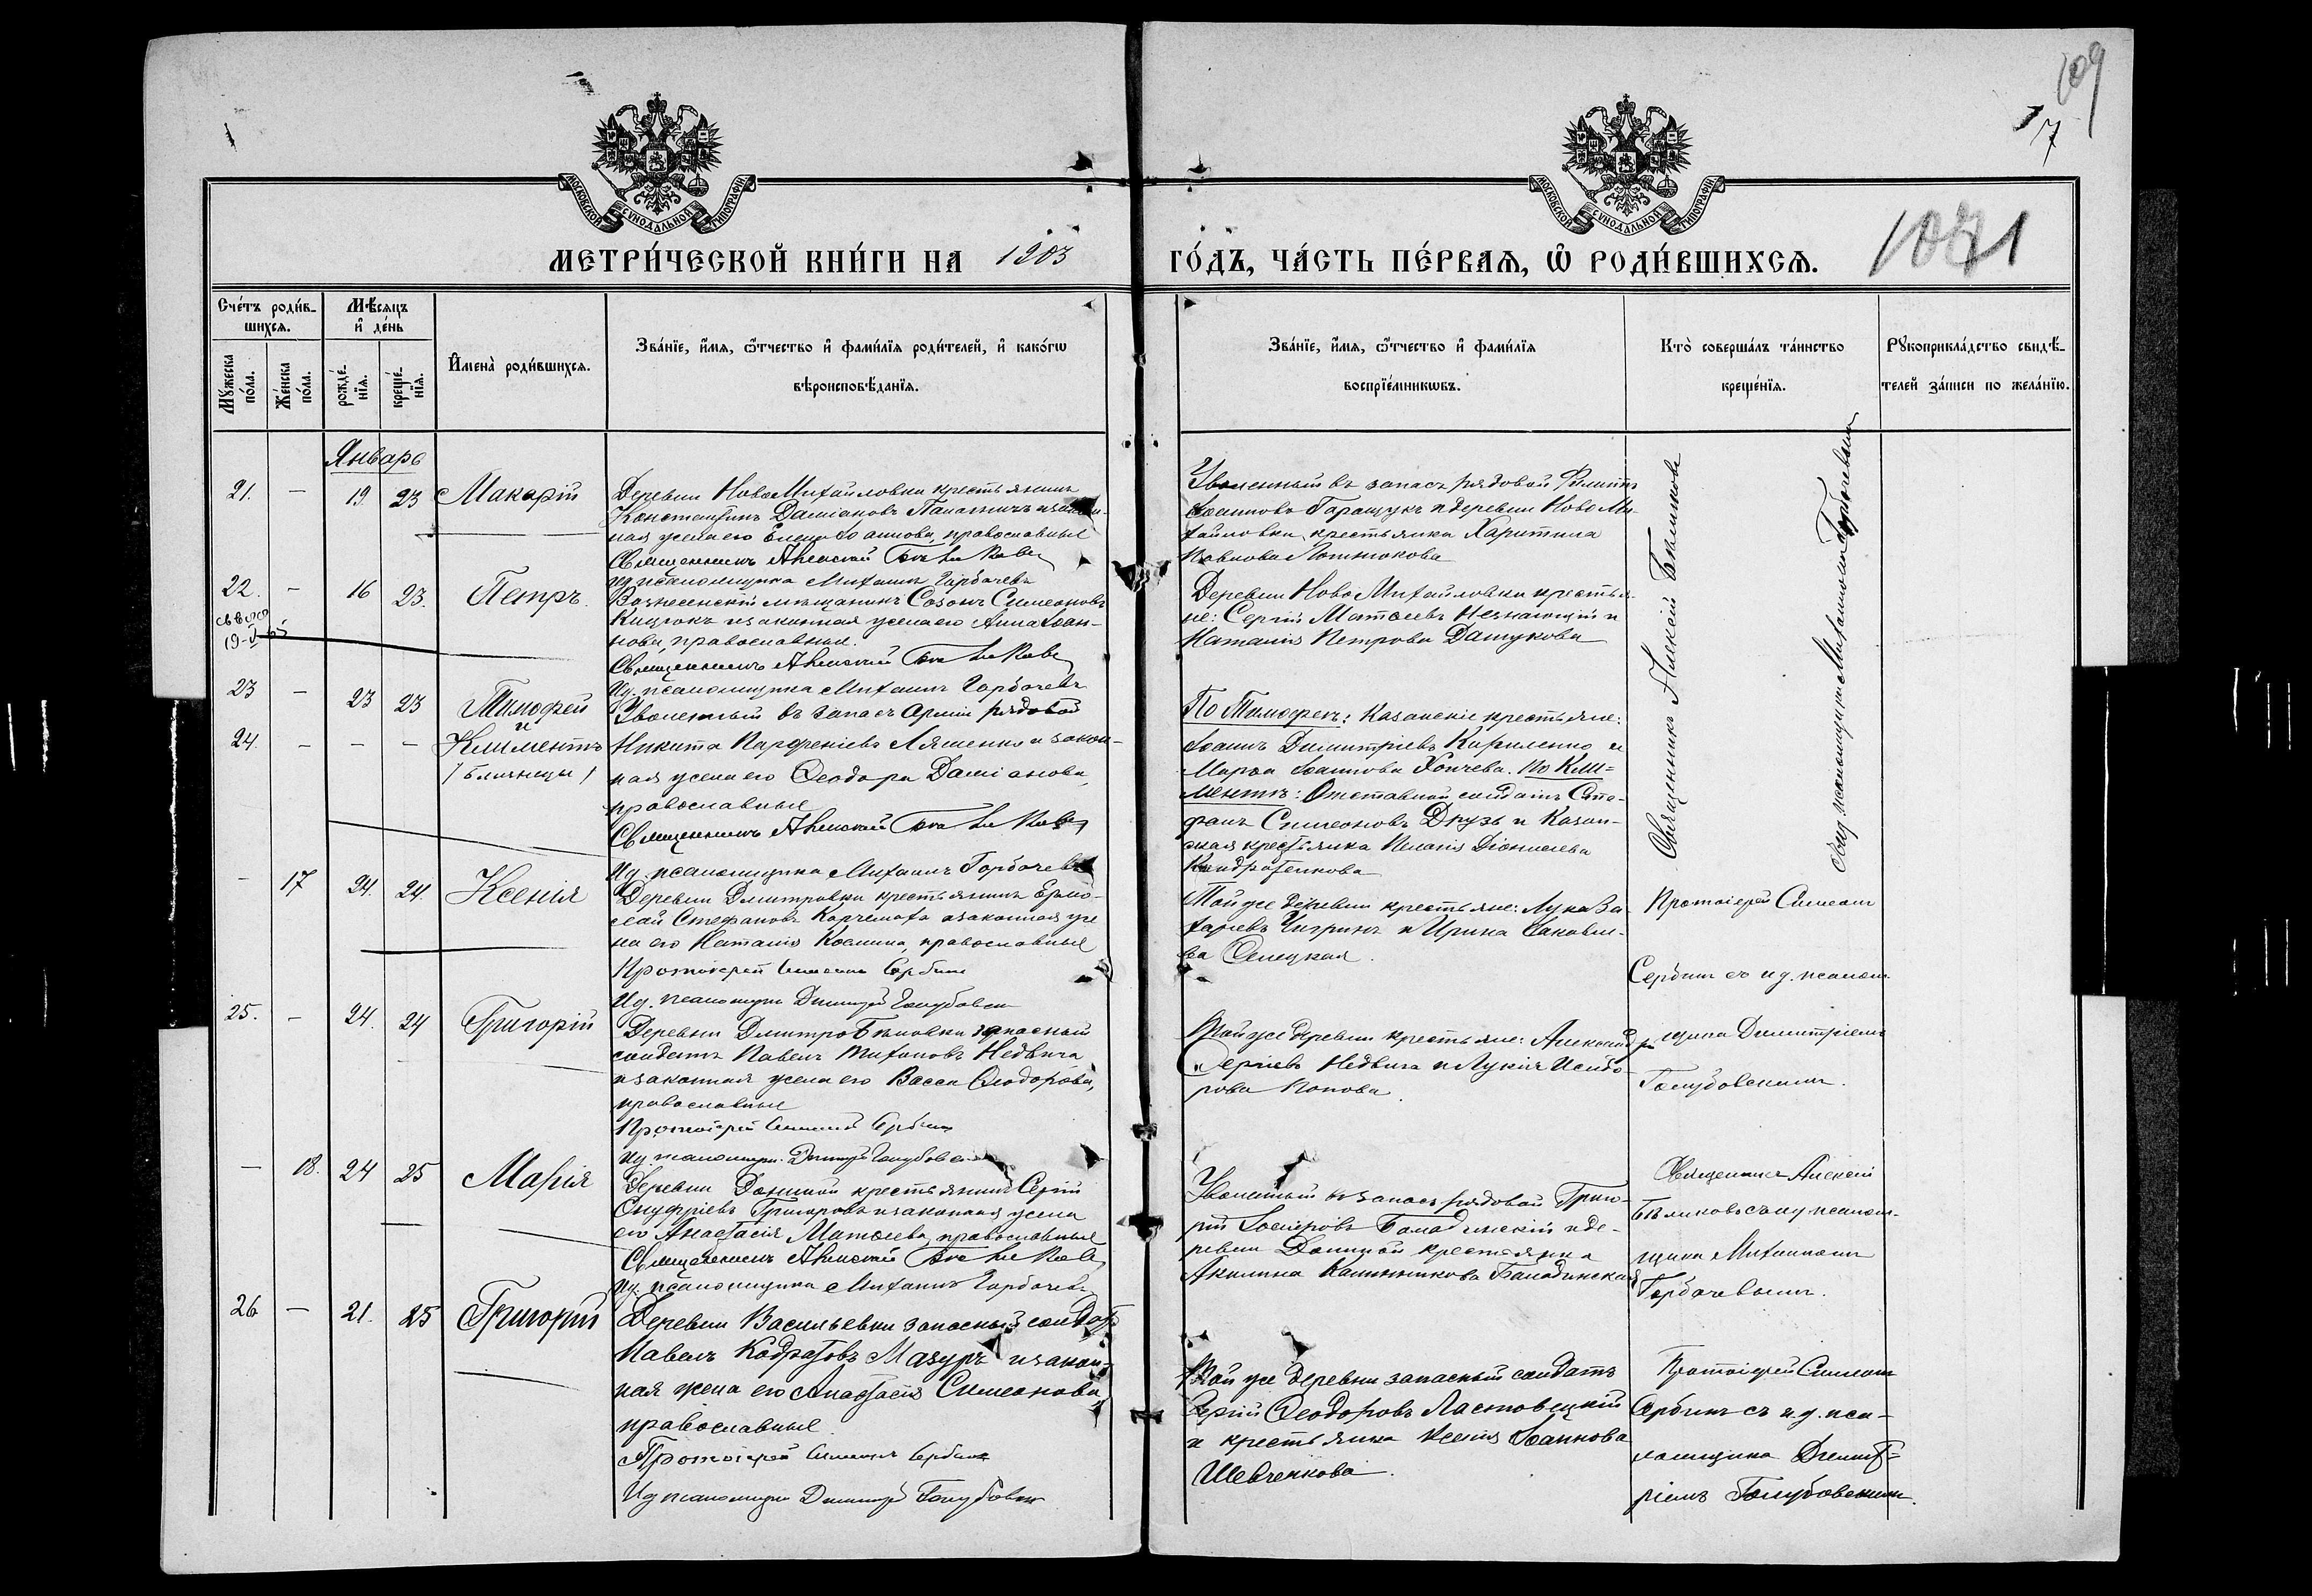 109
17
МОСКОВСКОЙ СѴНОДАЛЬНОЙ ТИПОГРАФІИ.
МОСКОВСКОЙ СѴНОДАЛЬНОЙ ТИПОГРАФІИ.
МЕТРИ́ЧЕСКОЙ КНИ́ГИ НА 1903 ГО́ДЪ, ЧА́СТЬ ПЕ́РВАѦ, Ѡ҆ РОДИ́ВШИХСѦ.
Сче́тъ роди́в-
шихсѧ.
Мꙋ́жеска по́ла.
Же́нска по́ла.
Мѣ́сѧцъ
и҆ де́нь
рожде́-
нїѧ.
креще́-
нїѧ.
И҆мена̀ роди́вшихсѧ.
Зва́нїе, и҆́мѧ, ѻ҆́тчество и҆ фами́лїѧ роди́телей, и҆ како́гѡ
вѣроисповѣ́данїѧ.
Зва́нїе, и҆́мѧ, ѻ҆́тчество и҆ фами́лїѧ
воспрїе́мникѡвъ.
Кто̀ соверша́лъ та́инство
креще́нїѧ.
Рꙋкоприкла́дство свидѣ́-
телей за́писи по жела́нїю.
Январь
21. — 19 23 Макарій
Деревни НовоМихайловки крестьянинъ
Константинъ Даміановъ
ная жена его Елена Іоаннова, православные
Священникъ Алексій Бѣликовъ
Ид. псаломщика Михаилъ Горбачевъ
Уволенный въ запасъ рядовой Филиппъ
Іоанновъ Таращукъ и деревни НовоМи-
хайловки крестьянка Харитина
Павлова
Священникъ Алексій Бѣликовъ
съ ид. псаломщика Михаиломъ Горбачевымъ
22. — 16 23. Петръ.
Вознесенскій мѣщанинъ Созонъ Симеоновъ
и законная жена его Анна Іоан-
нова, православные.
Священникъ Алексій Бѣликовъ
Ид. псаломщика Михаилъ Горбачевъ
Деревни НовоМихайловки крестья-
не: Сергій Матѳеевъ Незнающій и
Наталія Петрова Дашукова
23 — 23 23 Тимофей
и
24. — — — Климентъ
/близнецы/
Уволенный въ запасъ арміи рядовой
Никита Парфеніевъ Ляшенко и закон-
ная жена его Ѳеодора Даміанова,
православные
Священникъ Алексій Бѣликовъ
Ид. псаломщика Михаилъ Горбачевъ
По Тимофеѣ: Казанскіе крестьяне:
Іоаннъ Димитріевъ Кириленко и
Марѳа Іоаннова Хопчева. По Кли-
ментѣ: Отставной солдатъ Сте-
фанъ Симеоновъ Друзь и Казан-
ская крестьянка Пелагія Діонисіева
Кондратенкова
— 17 24. 24. Ксенія
Деревни Дмитровки крестьянинъ Ермо-
лай Стефановъ и законная же
на его Наталія Косьмина, православные
Протоіерей Симеонъ Сербинъ
Ид. псаломщ. Димитрій Голубовск
Той же деревни крестьяне: Лука За-
харіевъ Чигринъ и Ирина Іаковле-
ва
Протоіерей Симеонъ
Сербинъ съ ид. псалом-
щика Димитріемъ
Голубовскимъ.
25. — 24. 24 Григорій
Деревни ДмитроБѣловки запасный
солдатъ Павелъ Недвига
и законная жена его Васса Ѳеодорова,
православные
Протоіерей Симеонъ Сербинъ
Ид. псаломщ. Димитрій Голубовск
Той же деревни крестьяне: Александръ
Сергіевъ Недвига и Лукія Исидо-
рова Попова.
— 18. 24 25 Марія
Деревни Дониной крестьянинъ Сергій
Онуфріевъ Григоровъ и законная жена
его Анастасія Матѳеева, православные
Священникъ Алексій Бѣликовъ
Ид. псаломщика Михаилъ Горбачевъ
Уволенный въ запасъ рядовой Григо-
рій Іосифовъ и де-
ревни Дониной крестьянка
Акилина Калинникова
Священникъ Алексій
Бѣликовъ съ ид. псалом-
щика Михаиломъ
Горбачевымъ.
26 — 21. 25 Григорій
Деревни Васильевки запасный солдатъ
Павелъ Кодратовъ Мазуръ и закон-
ная жена его Анастасія Симеонова,
православные
Протоіерей Симеонъ Сербинъ
Ид псаломщика Димитрій Голубовск
Той же деревни запасный солдатъ
Сергій Ѳеодоровъ Ластовецкій
и крестьянка Ксенія Іоаннова
Шевченкова.
Протоіерей Симеонъ
Сербинъ съ ид. пса-
ломщика Димит-
ріемъ Голубовскимъ.